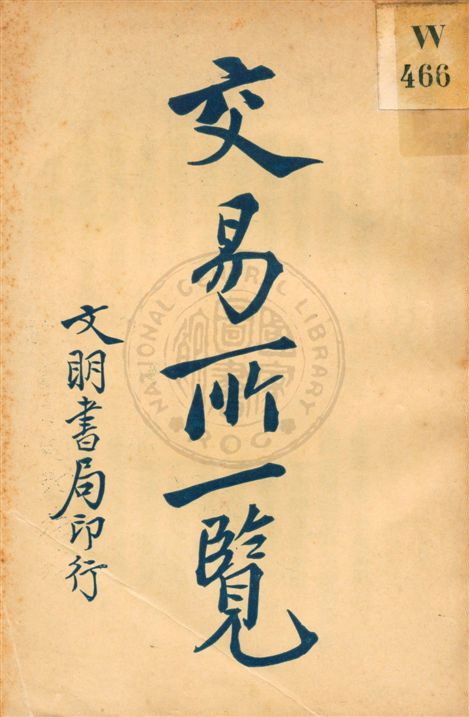 W
466
交易所一覽
文明書局印行
NATIONAL CENTRAL LIBRARY